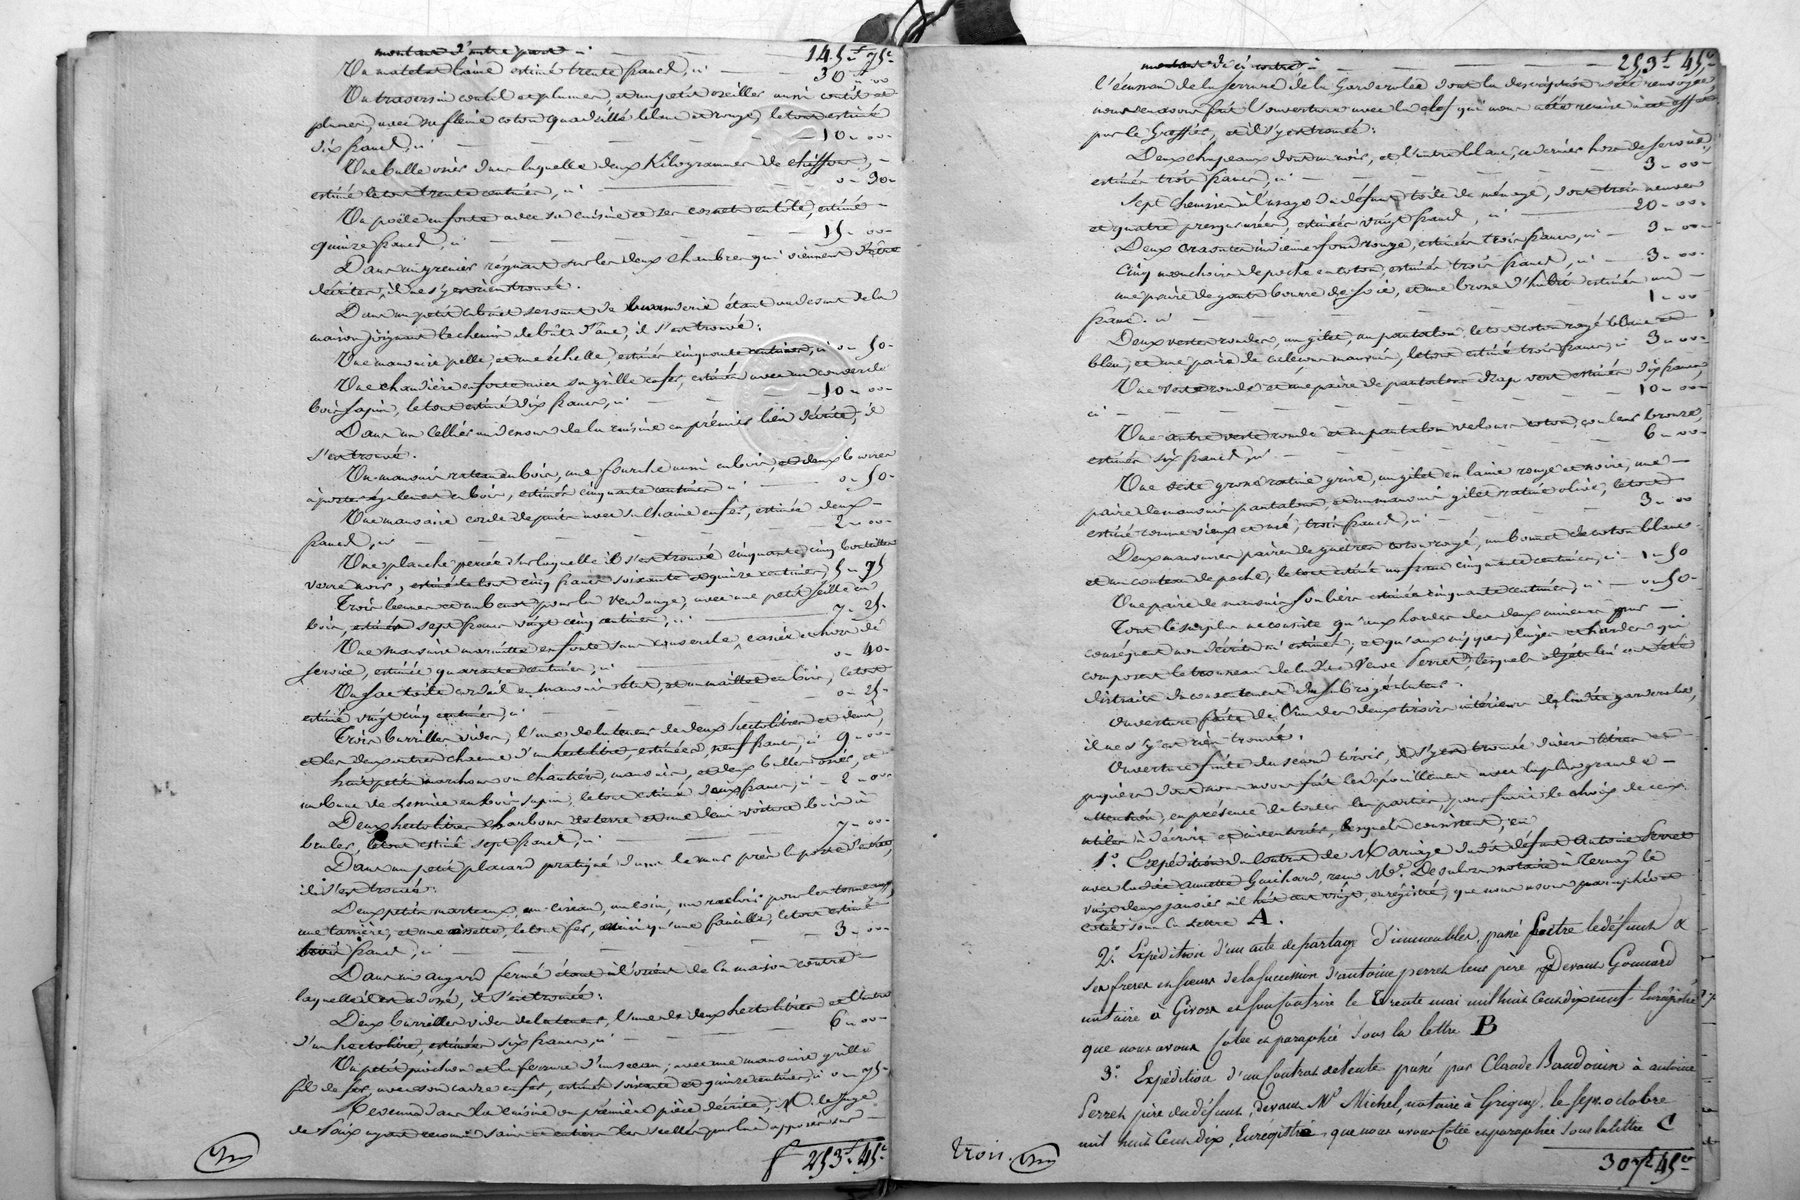 montant d'autre part ci — 145f 75c
Un matelat laine estimé trente francs, ci — 30 " 00
Un traversin coutil et plumes, et un petit oreiller aussi coutil et
plumes, avec sa fleine coton quadrillé bleu et rouge, le tout estimé
dix francs, ci — 10 - 00 -
Une balle osier dans laquelle deux Kilogrammes de chiffons, —
estimé le tout trente centimes, ci — 0 - 30 -
Un poële en fonte avec sa cuisine et ses cornets en tôle, estimé —
quinze francs, ci — 15 - 00 -
Dans un grenier régnant sur les deux chambres qui viennent d'être
décrites, il ne s'y est rien trouvé.
Dans un petit cabinet servant de buanderie étant au dessous de la
maison joignant le chemin de bât d'âne, il s'est trouvé:
Une mauvaise pelle, et une échelle, estimés cinquante centimes, ci 0 - 50 -
Une chaudière en fonte avec sa grille en fer, estimée avec un couvercle
bois sapin, le tout estimé dix francs, ci — 10 - 00 -
Dans un cellier au dessous de la cuisine en premier lieu décrite, il
s'est trouvé.
Un mauvais rateau en bois, une fourche aussi en bois, et deux
à porter également en bois, estimés cinquante centimes ci — 0 - 50 -
Une mauvaise corde de puits avec sa chaine en fer, estimée deux —
francs, ci — 2 - 00 -
Une planche percée sur laquelle il s'est trouvé cinquante cinq bouteilles
verre noir, estimé le tout cinq francs soixante et quinze centimes, 5 - 75
Trois bennes et un benot pour la vendange, avec une petite seille en
bois, estimés sept francs vingt cinq centimes, ci — 7 - 25 -
Une mauvaise marmitte en fonte sans couvercle, cassée et hors de
service, estimée quarante centimes, ci — 0 - 40 -
Un sac toile cordat en mauvais état, et un maillet en bois, le tout
estimé vingt cinq centimes, ci — 0 - 25 -
Trois barrilles vides, l'une de la teneur de deux hectolitres et demi,
et les deux autres chacune d'un hectolitre, estimées, neuf francs, ci 9 - 00 -
huit petits marchons ou chantiers, mauvais, et deux balles osier, et
un banc de en bois sapin, le tout estimé deux francs, ci — 2 - 00
Deux hectolitres charbon de terre et une demi voiture bois à
bruler, le tout estimé sept francs, ci — 7 - 00 -
Dans un petit placard pratiqué dans le mur près la porte d'entrée,
il s'est trouvé:
Deux petits marteaux, un ciseau, un coin, un racloir pour les tonneaux,
une tarrière, et une , le tout fer, ainsi qu'une faucille, le tout estimé
trois francs, ci — 3 - 00 -
Dans un angard fermé étant à l'orient de la maison contre
laquelle il est adossé, il s'est trouvé:
Deux barrilles vides de la teneur, l'une de deux hectolitres et l'autre
d'un hectolitre, estimées six francs, ci — 6 - 00 -
Un petit piochon et la ferrure d'un seau, avec une mauvaise grille
fil de fer, avec son cadre en fer, estimés soixante et quinze centimes, ci 0 - 75 -
Revenus dans la cuisine ou première pièce décrite, M. le Juge
de Paix ayant reconnu sains et entiers les scellés par lui apposés sur
f 253f 45c
montant de ci contre — 253f 45c
l'écusson de la serrure de la garderobe dont la description a été renvoyée,
nous en avons fait l'ouverture avec la clef qui nous a été remise à cet effet
par le Greffier, et il s'y est trouvé:
Deux chapeaux dont un noir, et l'autre blanc, ce dernier hors de service,
estimés trois francs, ci — 3 - 00 -
Sept chemises à l'usage du défunt, toile de ménage, dont trois neuves
et quatre presqu'usées, estimées vingt francs, ci — 20 - 00 -
Deux cravattes indienne fond rouge, estimées trois francs, ci — 3 - 00 -
Cinq mouchoirs de poche en coton, estimés trois francs, ci — 3 - 00 -
une paire de gants bourre de soie, et une brosse d'habit estimés un —
franc. ci — 1 - 00
Deux vestes rondes, un gilet, un pantalon, le tout coton rayé blanc et
bleu, et une paire de caleçons mauvais, le tout estimé trois francs, ci 3 - 00 -
Une veste ronde et une paire de pantalons drap vert estimés dix francs,
ci — 10 - 00 -
Une autre veste ronde et un pantalon velours coton, couleur bronze,
estimés six francs, ci — 6 - 00 -
Une veste grosse ratine grise, un gilet en laine rouge et noire, une —
paire de mauvais pantalons, et un mauvais gilet ratine olive, le tout
estimé comme vieux et usé, trois francs, ci — 3 - 00
Deux mauvaises paires de guêtres coton rayé, un bonnet de coton blanc
et un couteau de poche, le tout estimé un franc cinquante centimes, ci — 1 - 50
Une paire de mauvais souliers estimée cinquante centimes, ci — 0 - 50 -
Tout le surplus ne consiste qu'aux hardes des deux mineurs pour —
conséquent non décrites ni estimées, et qu'aux nippes, linges et hardes qui
composent le trousseau de la dite Veuve Perret, lesquels objets lui ont été
distraits du consentement du subrogé tuteur.
Ouverture faite de l'un des deux tiroirs intérieurs de la dite garderobe,
il ne s'y est rien trouvé.
Ouverture faite du second tiroir, il s'y est trouvé divers titres et —
papiers dont nous avons fait le dépouillement avec la plus grande —
attention, en présence de toutes les parties, pour faire le choix de ceux
utiles à décrire et inventoriés, lesquels consistent, en
1°. Expédition du Contrat de Mariage du dit défunt Antoine Perret
avec la dite Annette Guichard, reçu Me. Desulea notaire à Ternay le
vingt deux janvier mil huit cent vingt, enregistré, que nous avons paraphée et
cotée sous la Lettre A.
2°. Expédition d'un acte de partage d'immeubles, passé entre le défunt &
ses freres et sœurs de la succession d'antoine perret leur père, Devant Gonnard
notaire à Givors et son confrère le Trente mai mil huit Cent dix neuf, Enregistré
que nous avons Cotée et paraphée Sous la lettre B
3°. Expédition d'un Contrat de Vente passé par Claude Baudouin à antoine
Perret père du défunt, devant Me Michel, notaire à Grigny, le sept octobre
mil huit Cent dix, Enregistré, que nous avons Cotée et paraphée sous la lettre C
Trois.
307f 45c